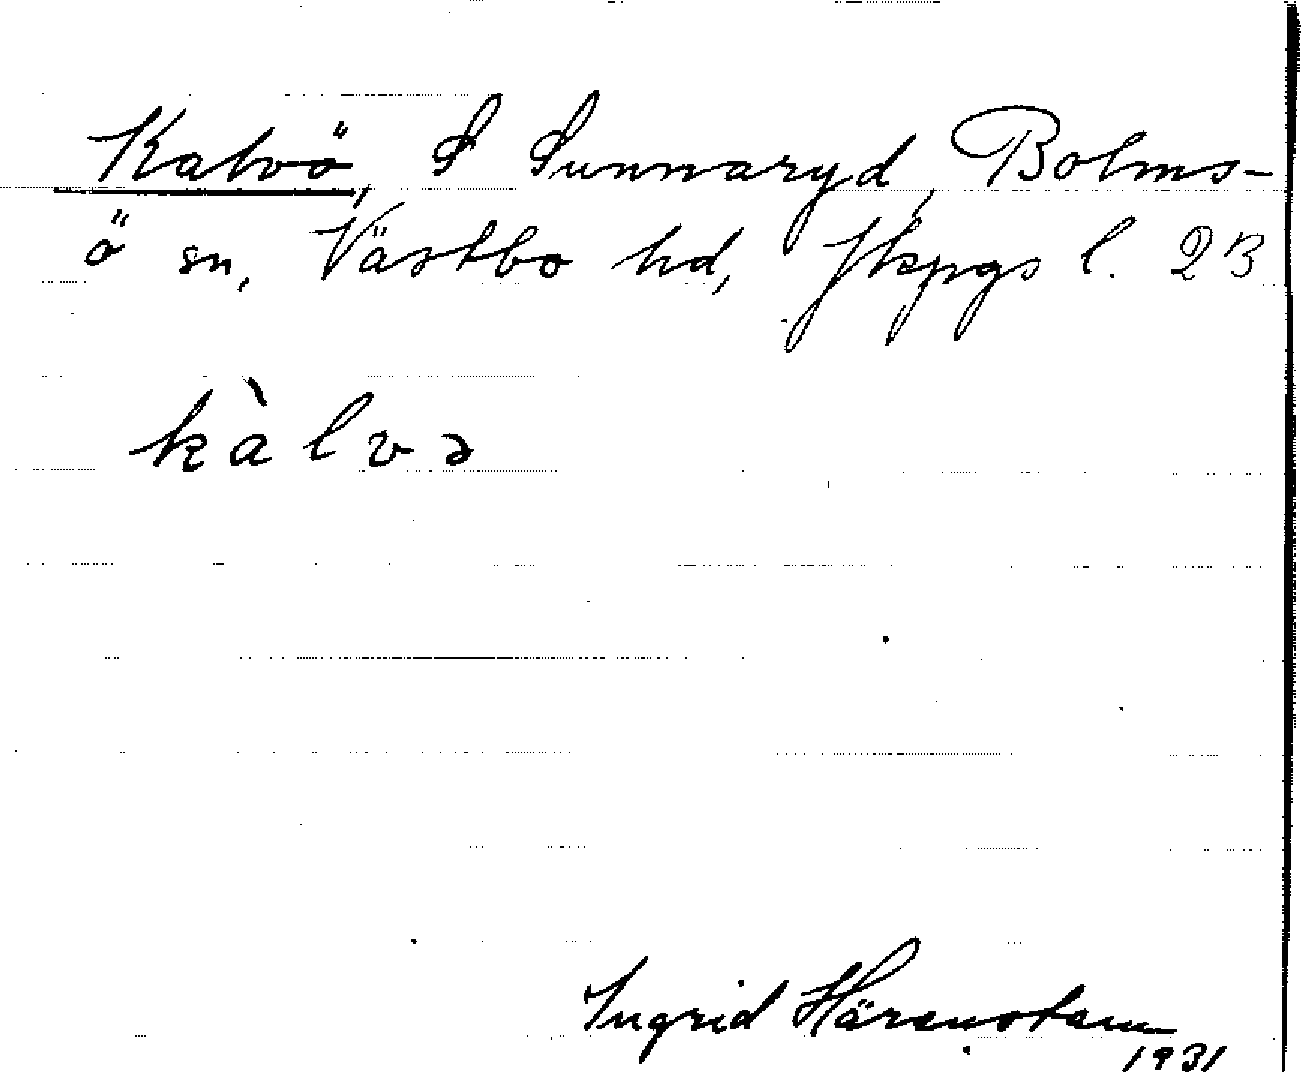 Kalvö, S Sunnaryd, Bolms-
ö sn, Västbo hd, Jkpgs l. 2B
kàlvə
Ingrid Härenstam
1931